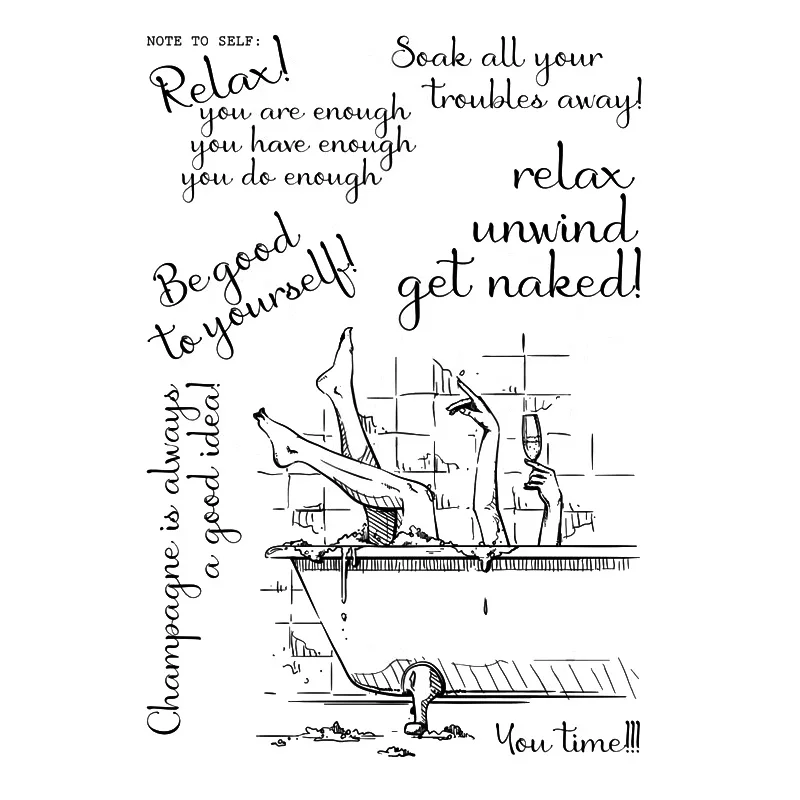 NOTE TO SELF:
Relax!
you are enough
you have enough
you do enough
Soak all your
troubles away!
relax
unwind
get naked!
Be good
to yourself!
Champagne is always
a good idea!
You time!!!